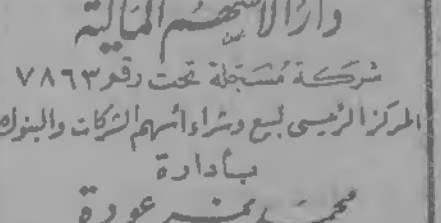 دار الأسهم المالية
شركة مُسَجّلة تحت رقم ٧٨٦٣
المركز الرئيسي لبيع وشراء أسهم الشركات والبنوك
بأدارة
عودة